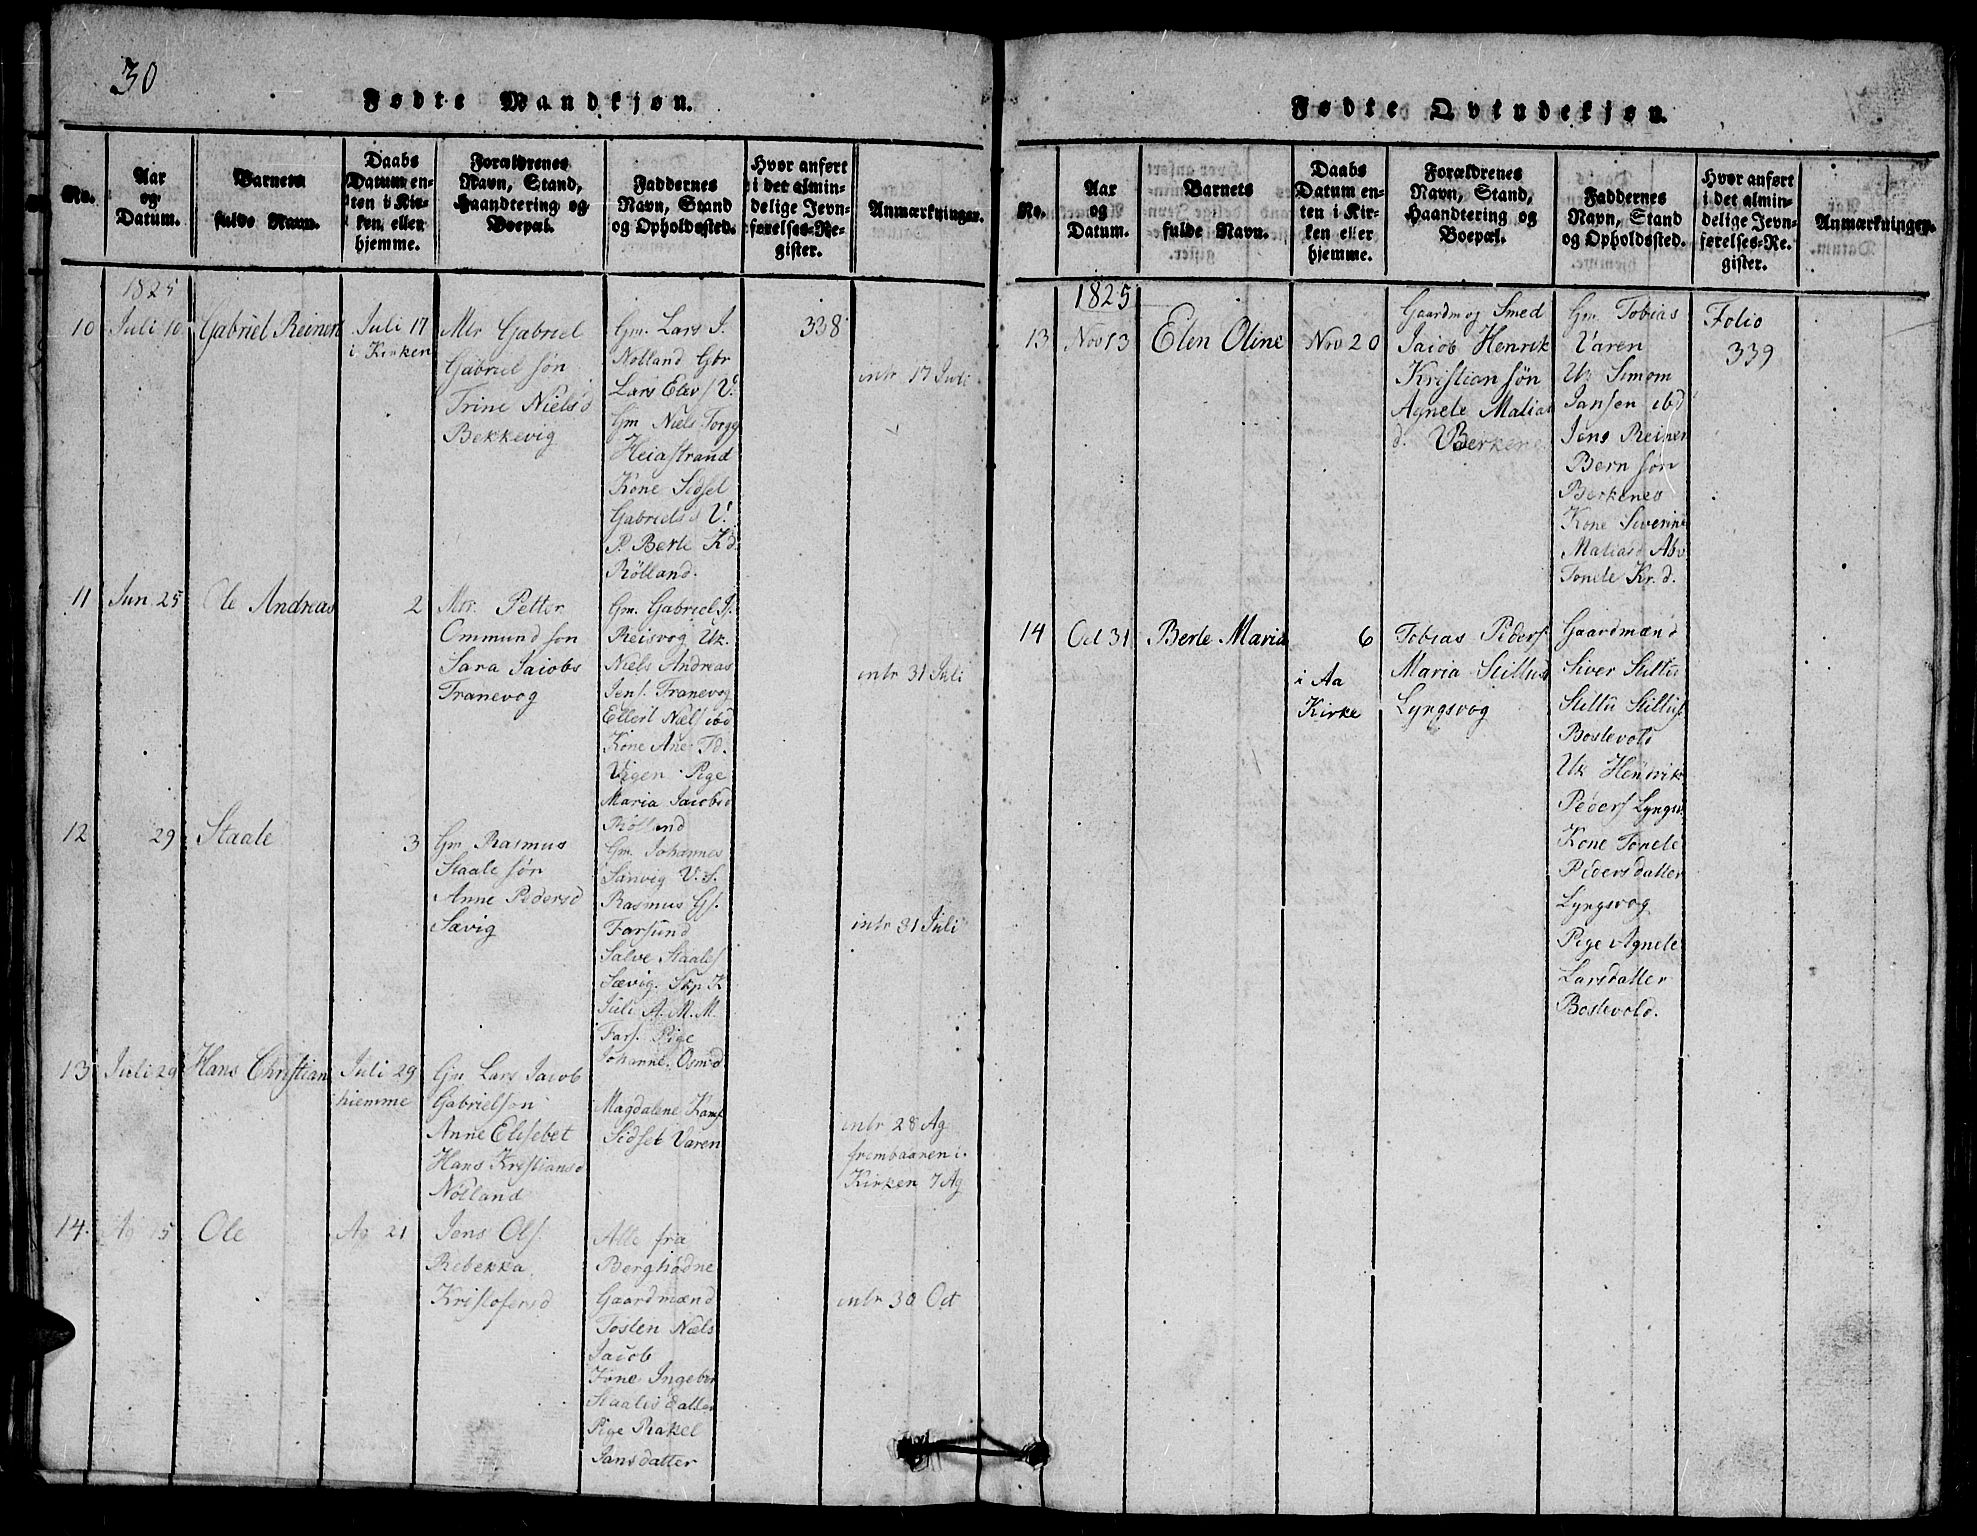 30
Fødte Mandkjøn.
No.
Aar
og
Datum.
Barnets
fulde Navn.
Daabs
Datum en-
ten i Kir-
ken eller
hjemme.
Forældrenes
Navn, Stand,
Haandtering og
Boepæl.
Faddernes
Navn, Stand
og Opholdssted.
Hvor anført
i det almin-
delige Jevn-
førelses-Re-
gister.
Anmærkninger.
1825
10
Juli 10
Gabriel Reinert
Juli 17
i Kirken
Mtr Gabriel
Gabriel søn
Trine Niels d
Bekkevig
Gm. Lars J.
Nolland Gbr
Lars Elevs V.
Gm Niels Torgg
Heiastrand
Kone Sidsel
Gabriels d V.
P. Berte K d.
Rölland.
338
intr 17 Juli
11
Jun 25
Ole Andreas
2
Mtr. Petter
Ommund son
Sara Jaiobs
Franevog
Gm. Gabriel J.
Reisvog Uk.
Niels Andreas
Jens. Franevog
Ellert Niels ibd
Kone Ane T D.
Vigen Pige
Maria Jacobsd
Rölland
intr 31 Juli
12
29
Staale
3
Gm Rasmus
Staale søn
Anne Pedersd
Sævig
Gm. Johannes
Sanvig V. S.
Rasmus Gs.
Farsund
Salve Staales
Sævig. Skp K
Juli A. M. M.
Fars. Pige
Johanne. Osmd
intr 31 Juli
13
Juli 29
Hans Christian
Juli 29
hiemme
Gm Lars Jacob
Gabrielson
Anne Elisebet
Hans Kristiansd
Nölland
Magdalene Kams
Sidsel Varen
intr 28 Ag
frembaaren i
Kirken 7 Ag
14.
Ag 15
Ole
Ag 21
Jens Ols.
Rebekka
Kristofersd
Alle fra
Berghödne
Gaardmænd
Tosten Niels
Jacob
Kone Ingeber
Staalis datter
Pige Rakel
Jansdatter
intr 30 Oct
Fødte Qvindekjøn.
No.
Aar
og
Datum.
Barnets
fulde Navn.
Daabs
Datum en-
ten i Kir-
ken eller
hjemme.
Forældrenes
Navn, Stand,
Haandtering og
Boepæl.
Faddernes
Navn, Stand
og Opholdssted.
Hvor anført
i det almin-
delige Jevn-
førelses-Re-
gister.
Anmærkninger.
1825
13
Nov 13
Elen Oline
Nov 20
Gaardm og Smed
Jaiob Henrik
Kristian søn
Agnete Matias
d. Berkene
Gm. Tobias
Varen
Uk Simon
Jansen ibd
Jens Reiner
Bern søn
Berkenes
Kone Severine
Matiasd Abv
Tonete Kr. d.
Folio
339
14
Oct 31
Berte Maria
6
i Aa
Kirke
Tobias Peders.
Maria Stittusd
Lyngsvog
Gaardmænd
Siver Stittu
Stittu Stittus.
Bostevold
Uk Hendrik
Peders Lyngsv.
Kone Tonete
Pedersdatter
Lyngsvog
Pige Agnete
Larsdatter
Bostevold.